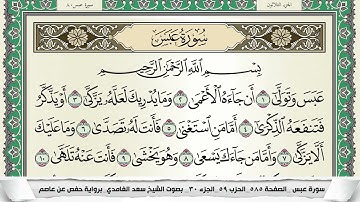 الجزء الثلاثون
سورة عبس
سُورَةُ عَبَسَ
بِسْمِ اللَّهِ الرَّحْمَٰنِ الرَّحِيمِ
عَبَسَ وَتَوَلَّىٰٓ ١ أَن جَآءَهُ ٱلْأَعْمَىٰ ٢ وَمَا يُدْرِيكَ لَعَلَّهُۥ يَزَّكَّىٰٓ ٣ أَوْ يَذَّكَّرُ
فَتَنفَعَهُ ٱلذِّكْرَىٰٓ ٤ أَمَّا مَنِ ٱسْتَغْنَىٰ ٥ فَأَنتَ لَهُۥ تَصَدَّىٰ ٦ وَمَا عَلَيْكَ
أَلَّا يَزَّكَّىٰ ٧ وَأَمَّا مَن جَآءَكَ يَسْعَىٰ ٨ وَهُوَ يَخْشَىٰ ٩ فَأَنتَ عَنْهُ تَلَهَّىٰ ١٠
سورة عبس _الصفحة ٥٨٥ _الحزب ٥٩ _الجزء ٣٠ _ بصوت الشيخ سعد الغامدي _برواية حفص عن عاصم